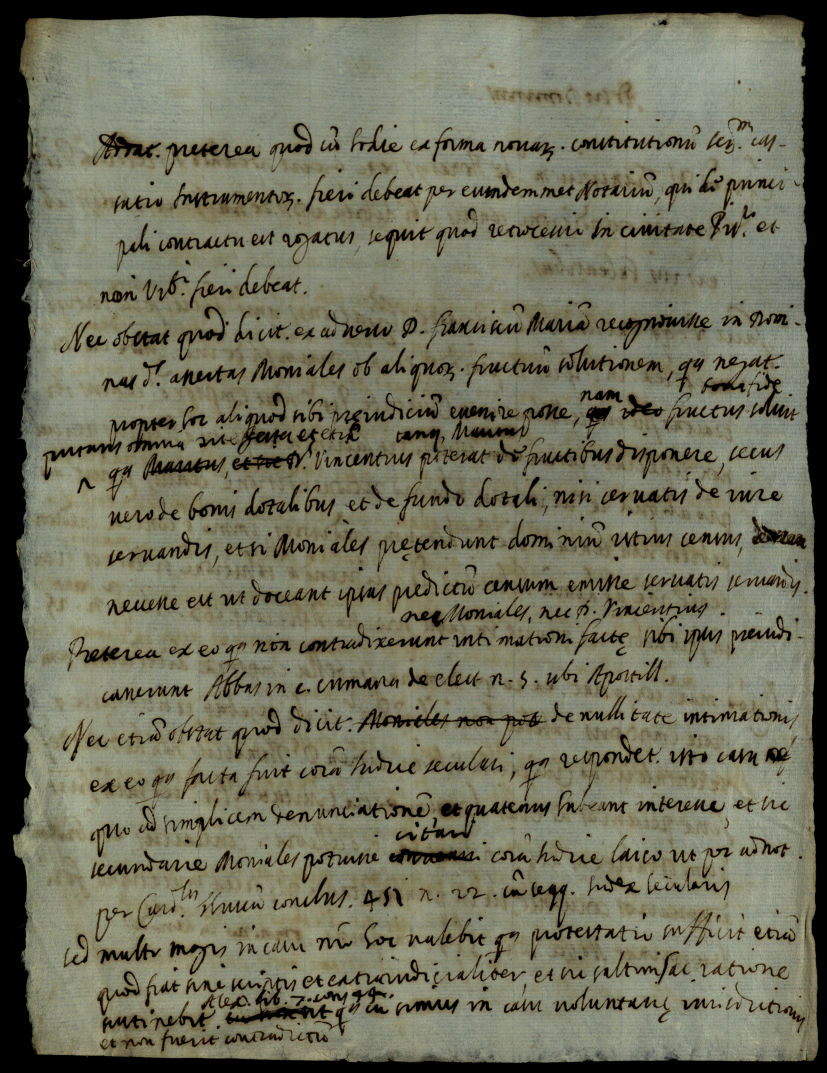 preterea quod cũ hodie ex forma novaꝝ. constitutionũ cas-
satio Instrumentoꝝ. fieri debeat per eumdemmet Notariũ, qui de princi-
pali contractu est rogatus, sequit quod retrocessio in civitate et
non Urb. fieri debeat.
Nec obstat quod dicit. ex adverso D. Franciscũ Mariã recognovisse in Domi-
nas d. assertas Moniales ob aliquoꝝ. fructuũ solutionem, qa negat.
nam bona fide
propter hoc aliquod sibi preiudiciũ evenire posse, fructus solvit
putans omnia rite tanq. Maritus
qa Vincentius poterat de fructibus disponere, secus
vero de bonis dotalibus et de fundo dotali, nisi servatis de iure
servandis, et si Moniales prętendunt dominiũ istius census,
necesse est ut doceant ipsas predictũ censum emisse servatis servandis.
nec Moniales, nec D. Vincentius.
Preterea ex eo qa non contradixerunt intimationi factę sibi ipsis preiudi-
caverunt Abbas in c. cumana de elect n. 5. ubi Apostill.
Nec etiã obstat quod dicit. Moniales non de nullitate intimationis,
ex eo qa facta fuit corã Iudice seculari, qa respondet. isto casu
quo ad simplicem denunciationẽ, et quatenus habeant interesse, et sic
citari
secundarie Moniales potuisse corã Iudice laico ut per adnot.
per Card. consibus. 451 n. 22. cũ seqq. Iudex secularis
sed multo magis in casu nrõ hoc valebit qa protestatio sufficit etiã
quod fiat sine scriptis et extraiudicialiter, et sic saltim hac ratione
Alex. lib. 7. cons
sustinebit qa cũ simus in casu voluntarię iurisditionis
et non fuerit contradictũ